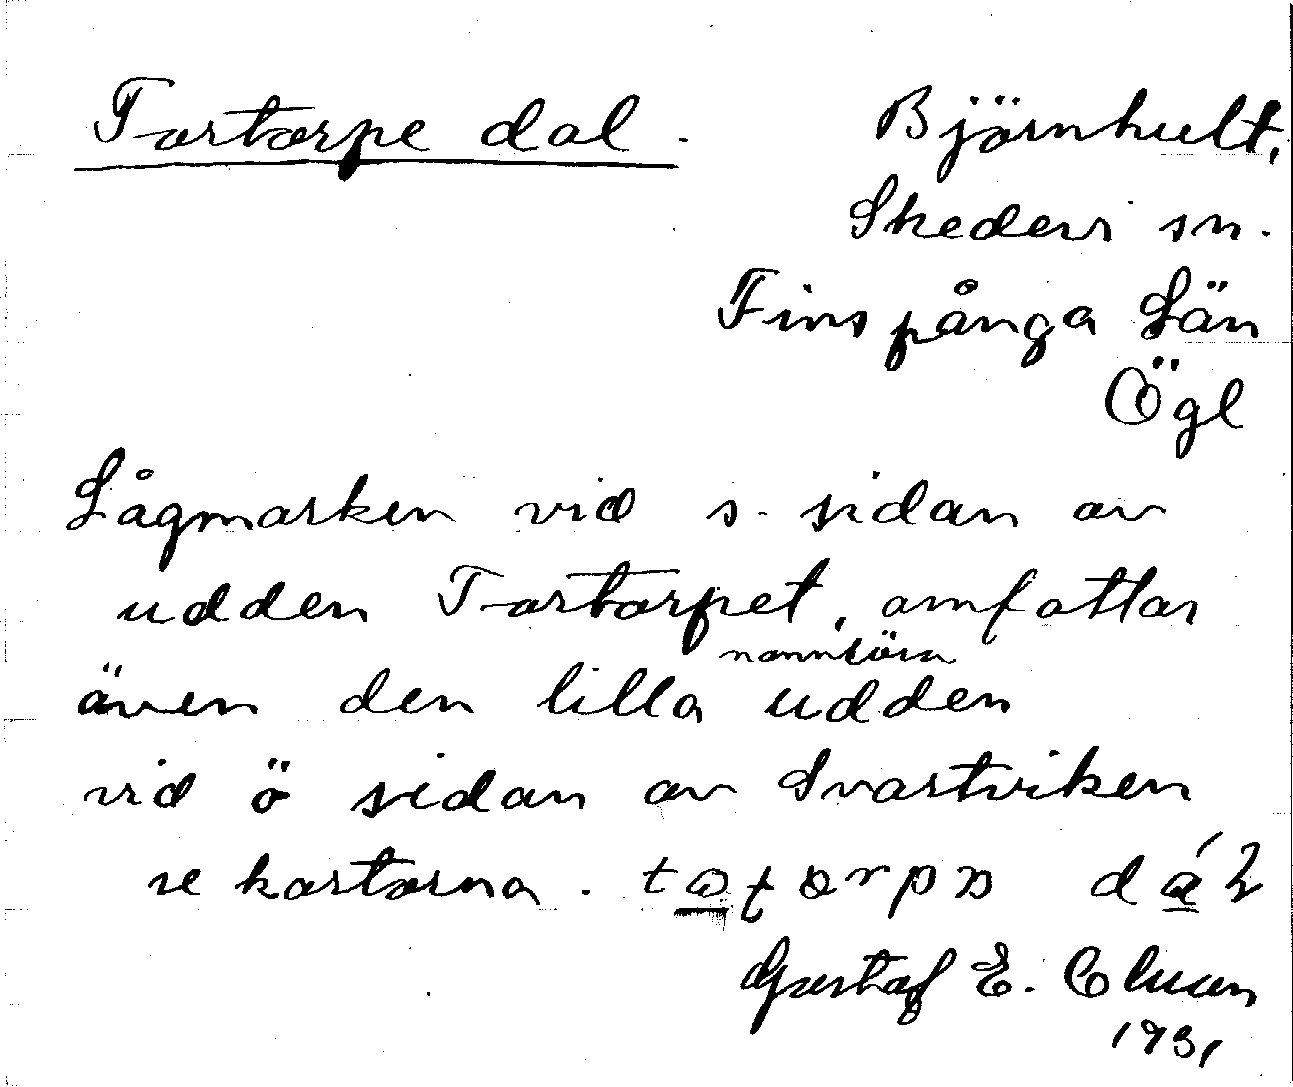 Tartorpe dal.
Björnhult,
Skedevi sn.
Finspånga Län
Ögl
Lågmarken vid s. sidan av
udden Tartorpet, omfattar
namnlösa
även den lilla udden
vid ö sidan av Svartviken
se kartorna.
Gustaf E.
1931